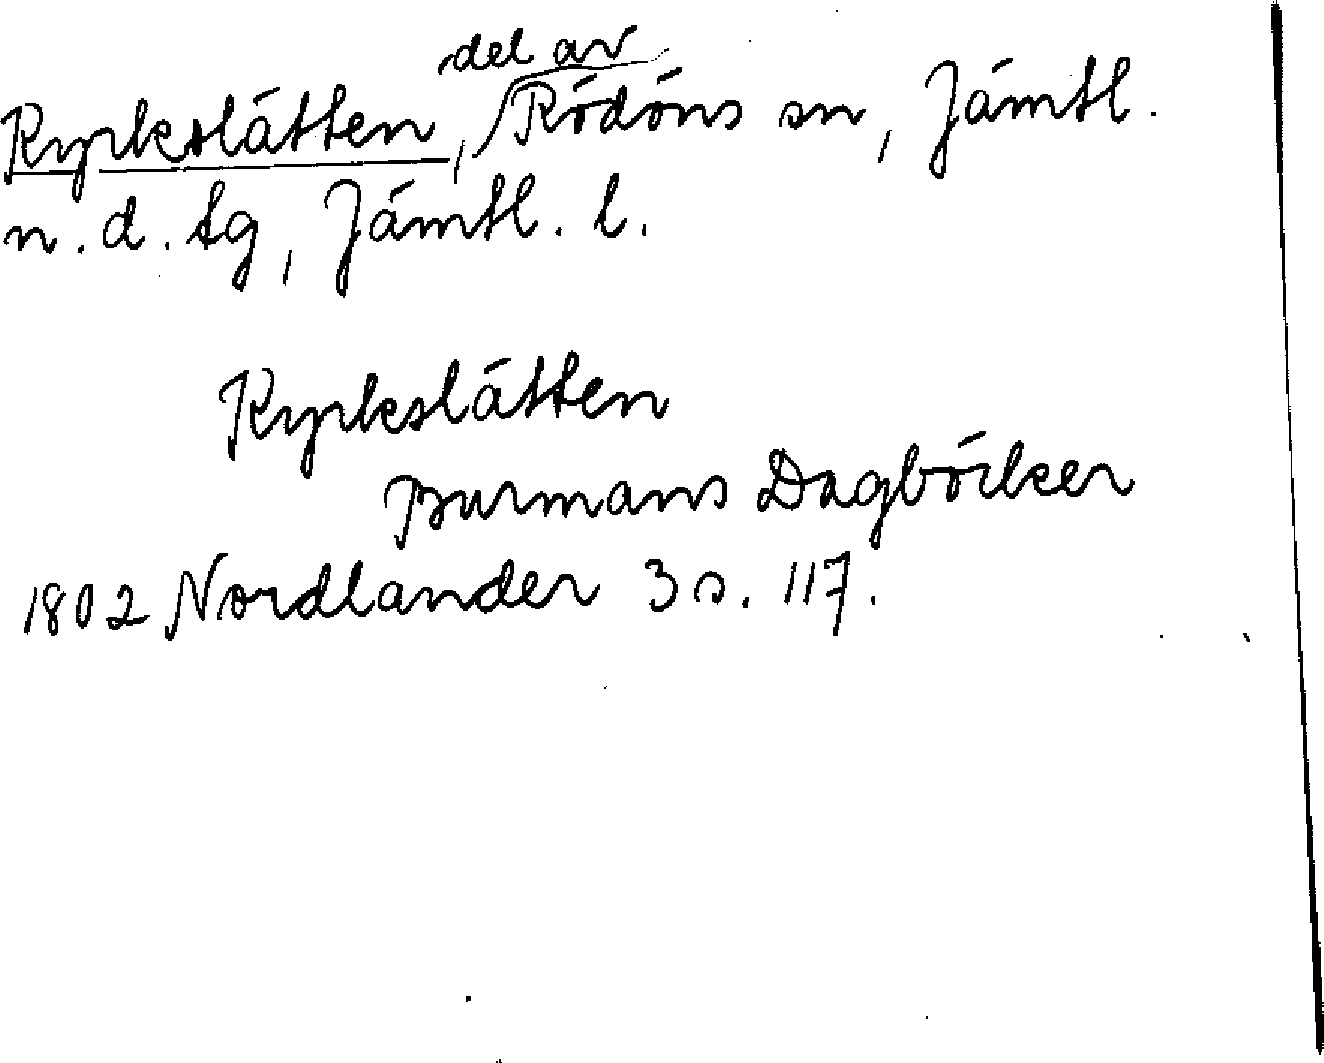 Kyrkslätten, del av Rödöns sn, Jämtl.
n. d. tg, Jämtl. l.
Kyrkslätten
Burmans Dagböcker
1802 Nordlander 3 s. 117.